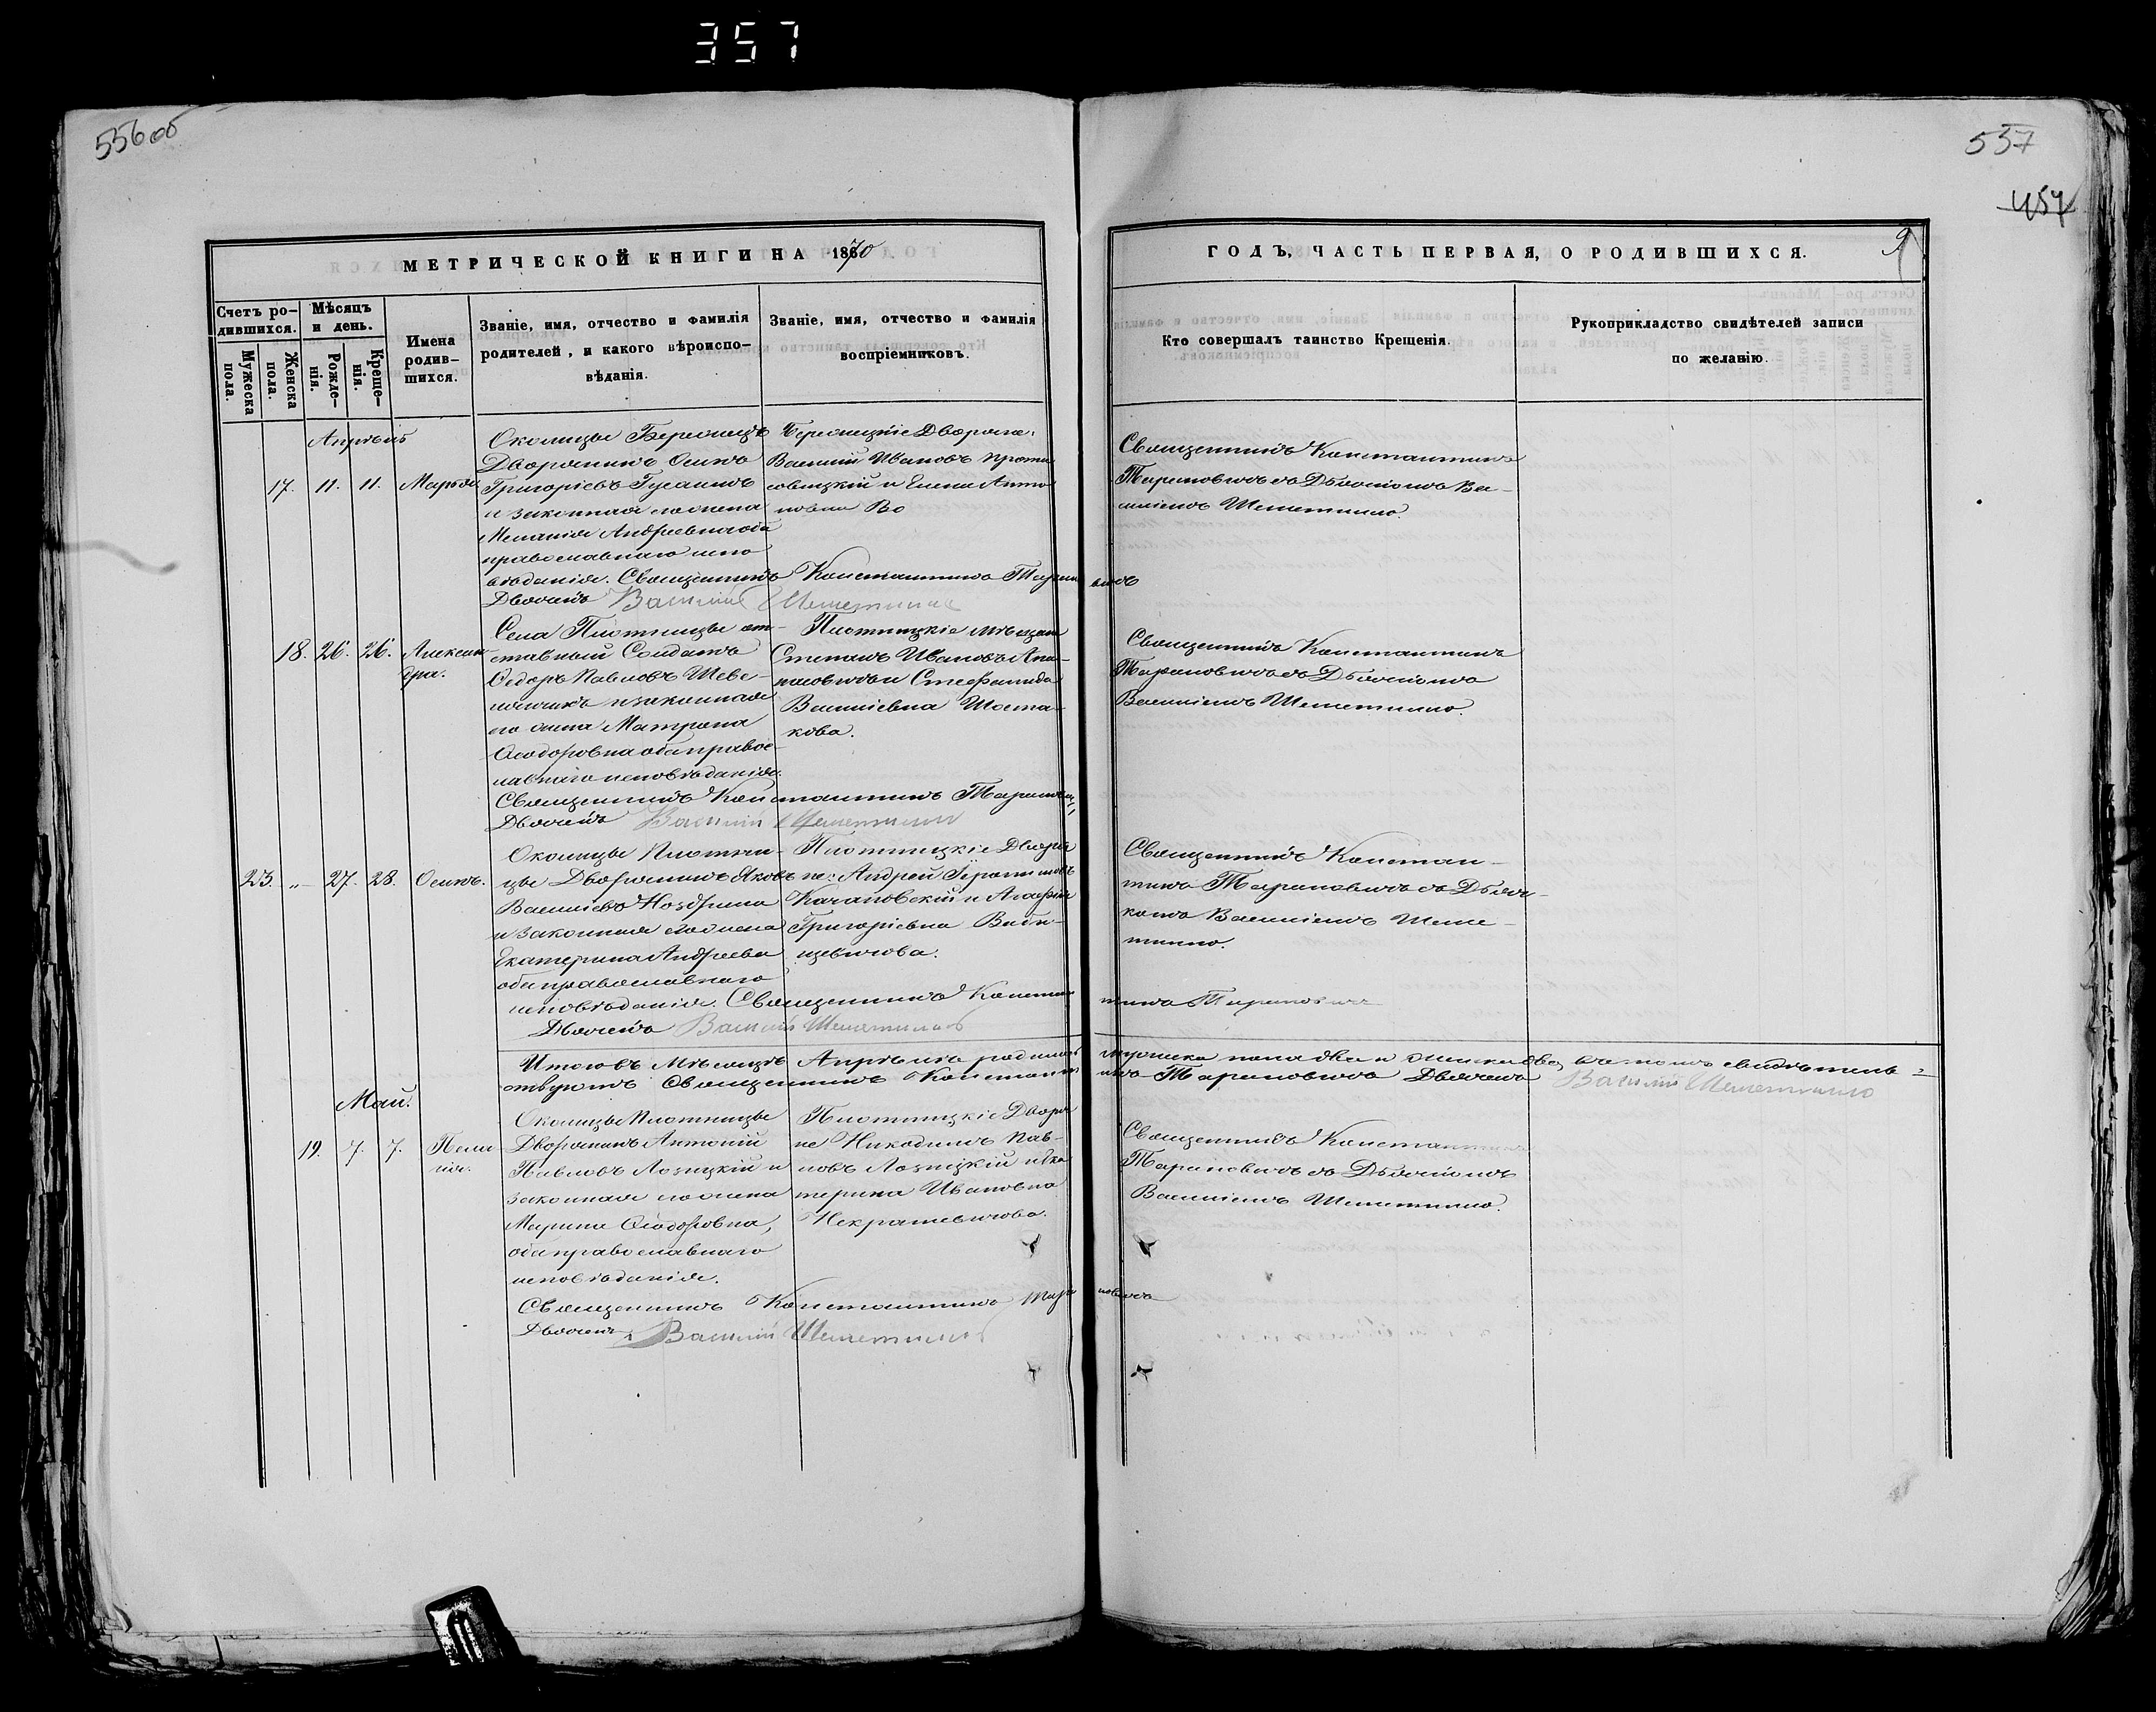 357
556 об
557
457
9
МЕТРИЧЕСКОЙ КНИГИ НА 1870
ГОДЪ, ЧАСТЬ ПЕРВАЯ, О РОДИВШИХСЯ.
Счетъ ро-
дившихся.
Мужеска
пола.
Женска
пола.
Мѣсяцъ
и день.
Рожде-
нія.
Креще-
нія.
Имена
родив-
шихся.
Званіе, имя, отчество и фамилія
родителей, и какого вѣроиспо-
вѣданія.
Званіе, имя, отчество и фамилія
воспріемниковъ.
Кто совершалъ таинство Крещенія.
Рукоприкладство свидѣтелей записи
по желанію.
Апрѣль
17. 11. 11. Марья
Околицы
Дворянинъ Осипъ
Григоріевъ
и законная его жена
Меланія Андреевна оба
православнаго испо
вѣданія. Священникъ Константинъ
Дьячекъ Василій
Дворяне:
Василій Ивановъ
и Елена Анто
нова
Священникъ Константинъ
Тарановичъ съ Дьячкомъ Ва-
силіемъ
18. 26. 26. Алексан
дра.
Села Плотницы от-
ставный Солдатъ
Федоръ Павловъ Шеве-
и законная
его жена Матрона
Феодоровна оба правос-
лавнаго исповѣданія.
Священникъ Константинъ
Дьячекъ Василій
Плотницкіе мѣщане
Степанъ Ивановъ Апа-
насовичъ и Стефанида
Василіевна Шоста-
кова.
Священникъ Константинъ
Тарановичъ съ Дьячкомъ
Василіемъ
23. „ 27. 28. Осипъ.
Околицы Плотни-
цы Дворянинъ Яковъ
Василіевъ
и законная его жена
Екатерина Андреева
оба православнаго
исповѣданія. Священникъ Константинъ Тарановичъ
Дьячекъ Василій
Плотницкіе Дворя
не: Андрей
Качановскій и Агафія
Григоріевна
Священникъ Констан-
тинъ Тарановичъ съ Дьяч-
комъ Василіемъ
Итого въ Мѣсяцѣ Апрѣлѣ родилось мужеска пола два и женска два, въ томъ свидѣтель-
ствуютъ Священникъ Константинъ Тарановичъ Дьячекъ Василій
Май.
19. 7. 7. Пела
гія.
Околицы Плотницы
Дворянинъ Антоній
Павловъ Лозицкій и
законная его жена
Марина Феодоровна,
оба православнаго
исповѣданія.
Священникъ Константинъ Тарановичъ
Дьячекъ Василій
Плотницкіе Дворя
не Никодимъ Пав-
ловъ Лозицкій и Ека
терина Ивановна
Некрашевичова.
Священникъ Константинъ
Тарановичъ съ Дьячкомъ
Василіемъ